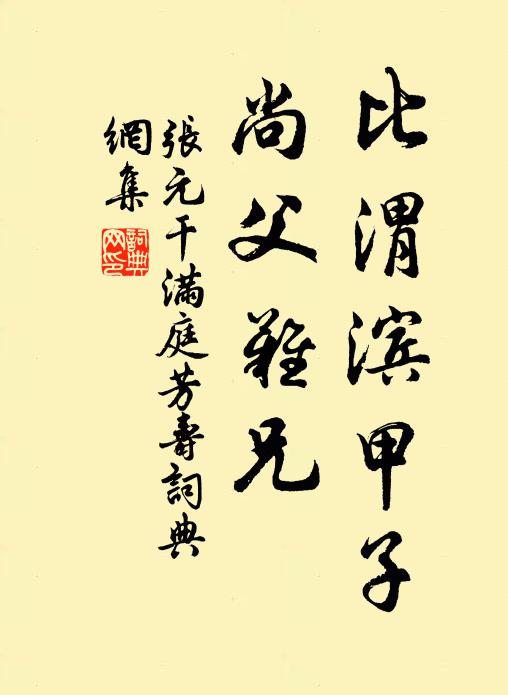 比渭滨甲子
尚父難兄
張元干满庭芳壽詞典
網集
詞典網印